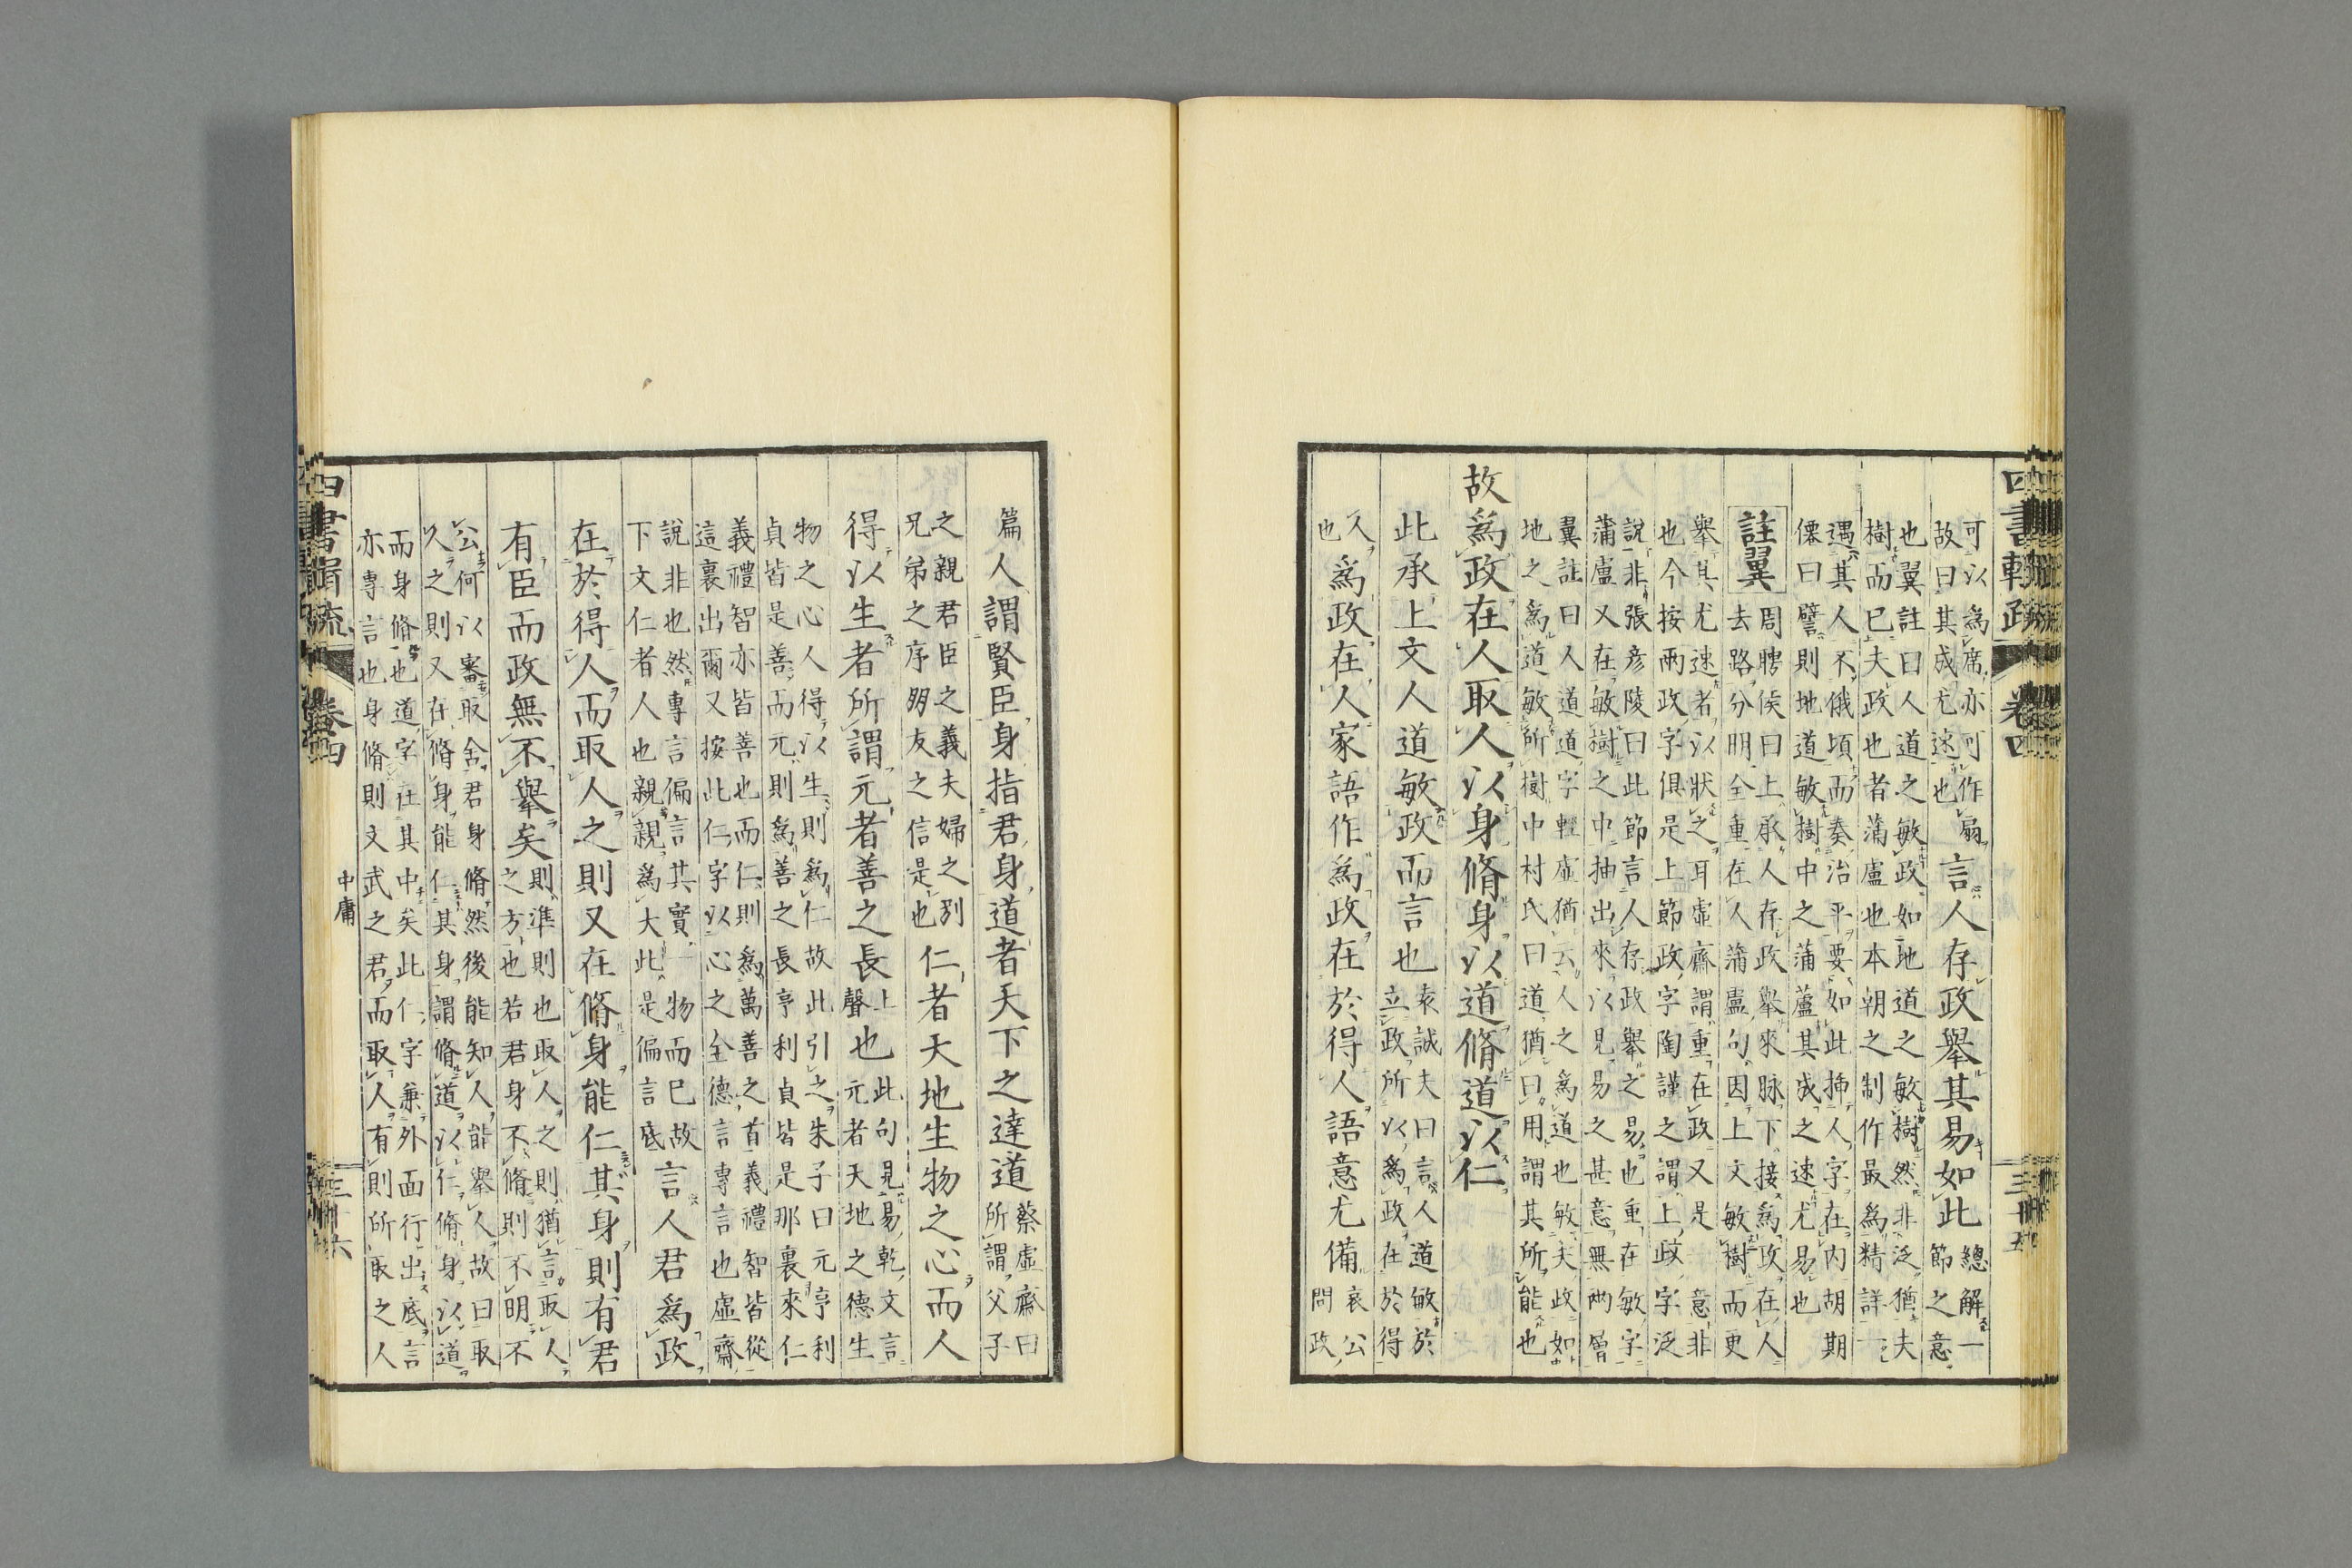 四書輯疏 卷四 三十五
可以爲席亦可作扇
故曰其成尤速也
言人存政舉其易如此
總解一
節之意
也翼註曰人道之敏政如地道之敏樹然非泛猶夫
樹而已夫政也者蒲盧也本朝之制作最爲精詳一
遇其人不俄頃而奏治平要如此揷人字在內胡期
僊曰譬則地道敏樹中之蒲蘆其成之速尤易也
註翼
周聘侯曰上承人存政舉來脉下接爲政在人
去路分明全重在人蒲盧句因上文敏樹而更
舉其尤速者以狀之耳虛齋謂重在政又是一意非
也今按兩政字俱是上節政字陶謹之謂上政字泛
說非張彥陵曰此節言人存政舉之易也重在敏字
蒲盧又在敏樹之中抽出來以見易之甚意無兩層
翼註曰人道道字輕虛猶云人之爲道也敏夫政如
地之爲道敏所樹中村氏曰道猶曰用謂其所能也
故爲政在人取人以身脩身以道脩道以仁
此承上文人道敏政而言也
袁誠夫曰言人道敏於
立政所以爲政在於得
人
也
爲政在人家語作爲政在於得人語意尤備
哀公
問政
篇
人謂賢臣身指君身道者天下之達道
蔡虛齋曰
所謂父子
之親君臣之義夫婦之別
兄弟之序朋友之信是也
仁者天地生物之心而人
得以生者所謂元者善之長
上
聲
也
此句見易乾文言
元者天地之德生
物之心人得以生則爲仁故此引之朱子曰元亨利
貞皆是善而元則爲善之長亨利貞皆是那裏來仁
義禮智亦皆善也而仁則爲萬善之首義禮智皆從
這裏出爾又按此仁字以心之全德言專言也虛齋
說非也然專言偏言其實一物而已故
下文仁者人也親親爲大此是偏言底
言人君爲政
在於得人而取人之則又在脩身能仁其身則有君
有臣而政無不舉矣
則準則也取人之則猶言取人
之方也若君身不脩則不明不
公何以審取舍君身脩然後能知人能舉人故曰取
人之則又在脩身能仁其身謂脩道以仁脩身以道
而身脩也道字在其中矣此仁字兼外面行出底言
亦專言也身脩則文武之君而取人有則所取之人
四書輯疏 卷四 中庸 三十六